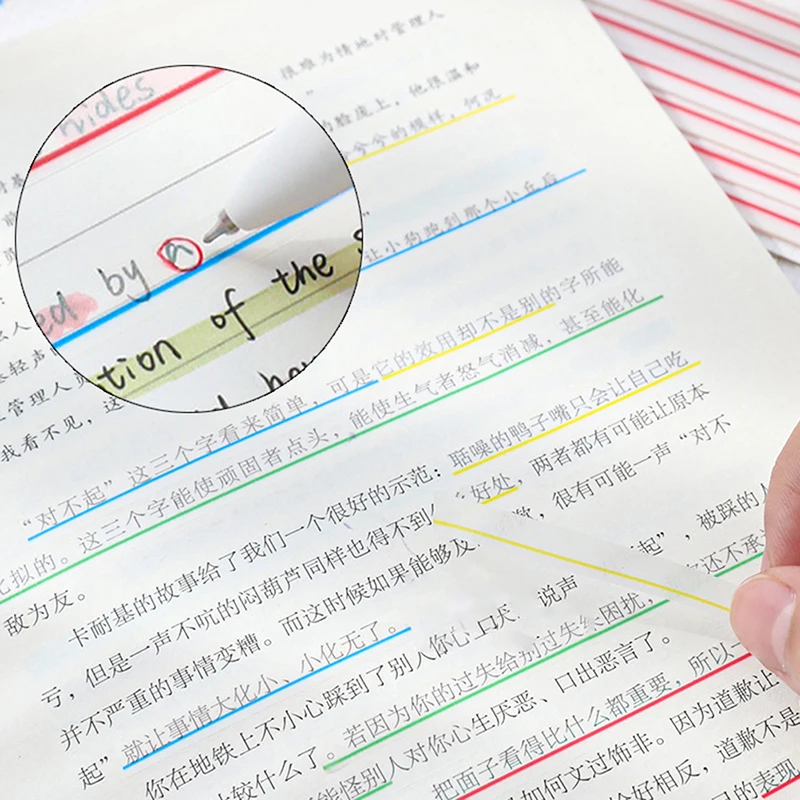 很难为情地对管理人
的脸庞上，他很温和
兮兮的模样，何况
让小狗跑到那个小丘后
vides
ed by a
tion of the
轻声
管理人员
我看不见，这
“对不起”这三个字看来简单，可是它的效用却不是别的字所能
比拟的。这三个字能使顽固者点头，能使生气者怒气消减，甚至能化
敌为友。
卡耐基的故事给了我们一个很好的示范：聒噪的鸭子嘴只会让自己吃
亏，但是一声不吭的闷葫芦同样也得不到好处，两者都有可能让原本
并不严重的事情变糟。而这时候如果能够及 歉，很有可能一声“对不
起”就让事情大化小、小化无了。
你在地铁上不小心踩到了别人你心口厌 说声 起”，被踩的人
比较什么了。若因为你的过失给别过失 困扰， 你还不承
能怪别人对你心生厌恶、口出恶言了。
把面子看得比什么都重要，所以一
是如何文过饰非。因为道歉让
恰好相反，道歉不是
的表现